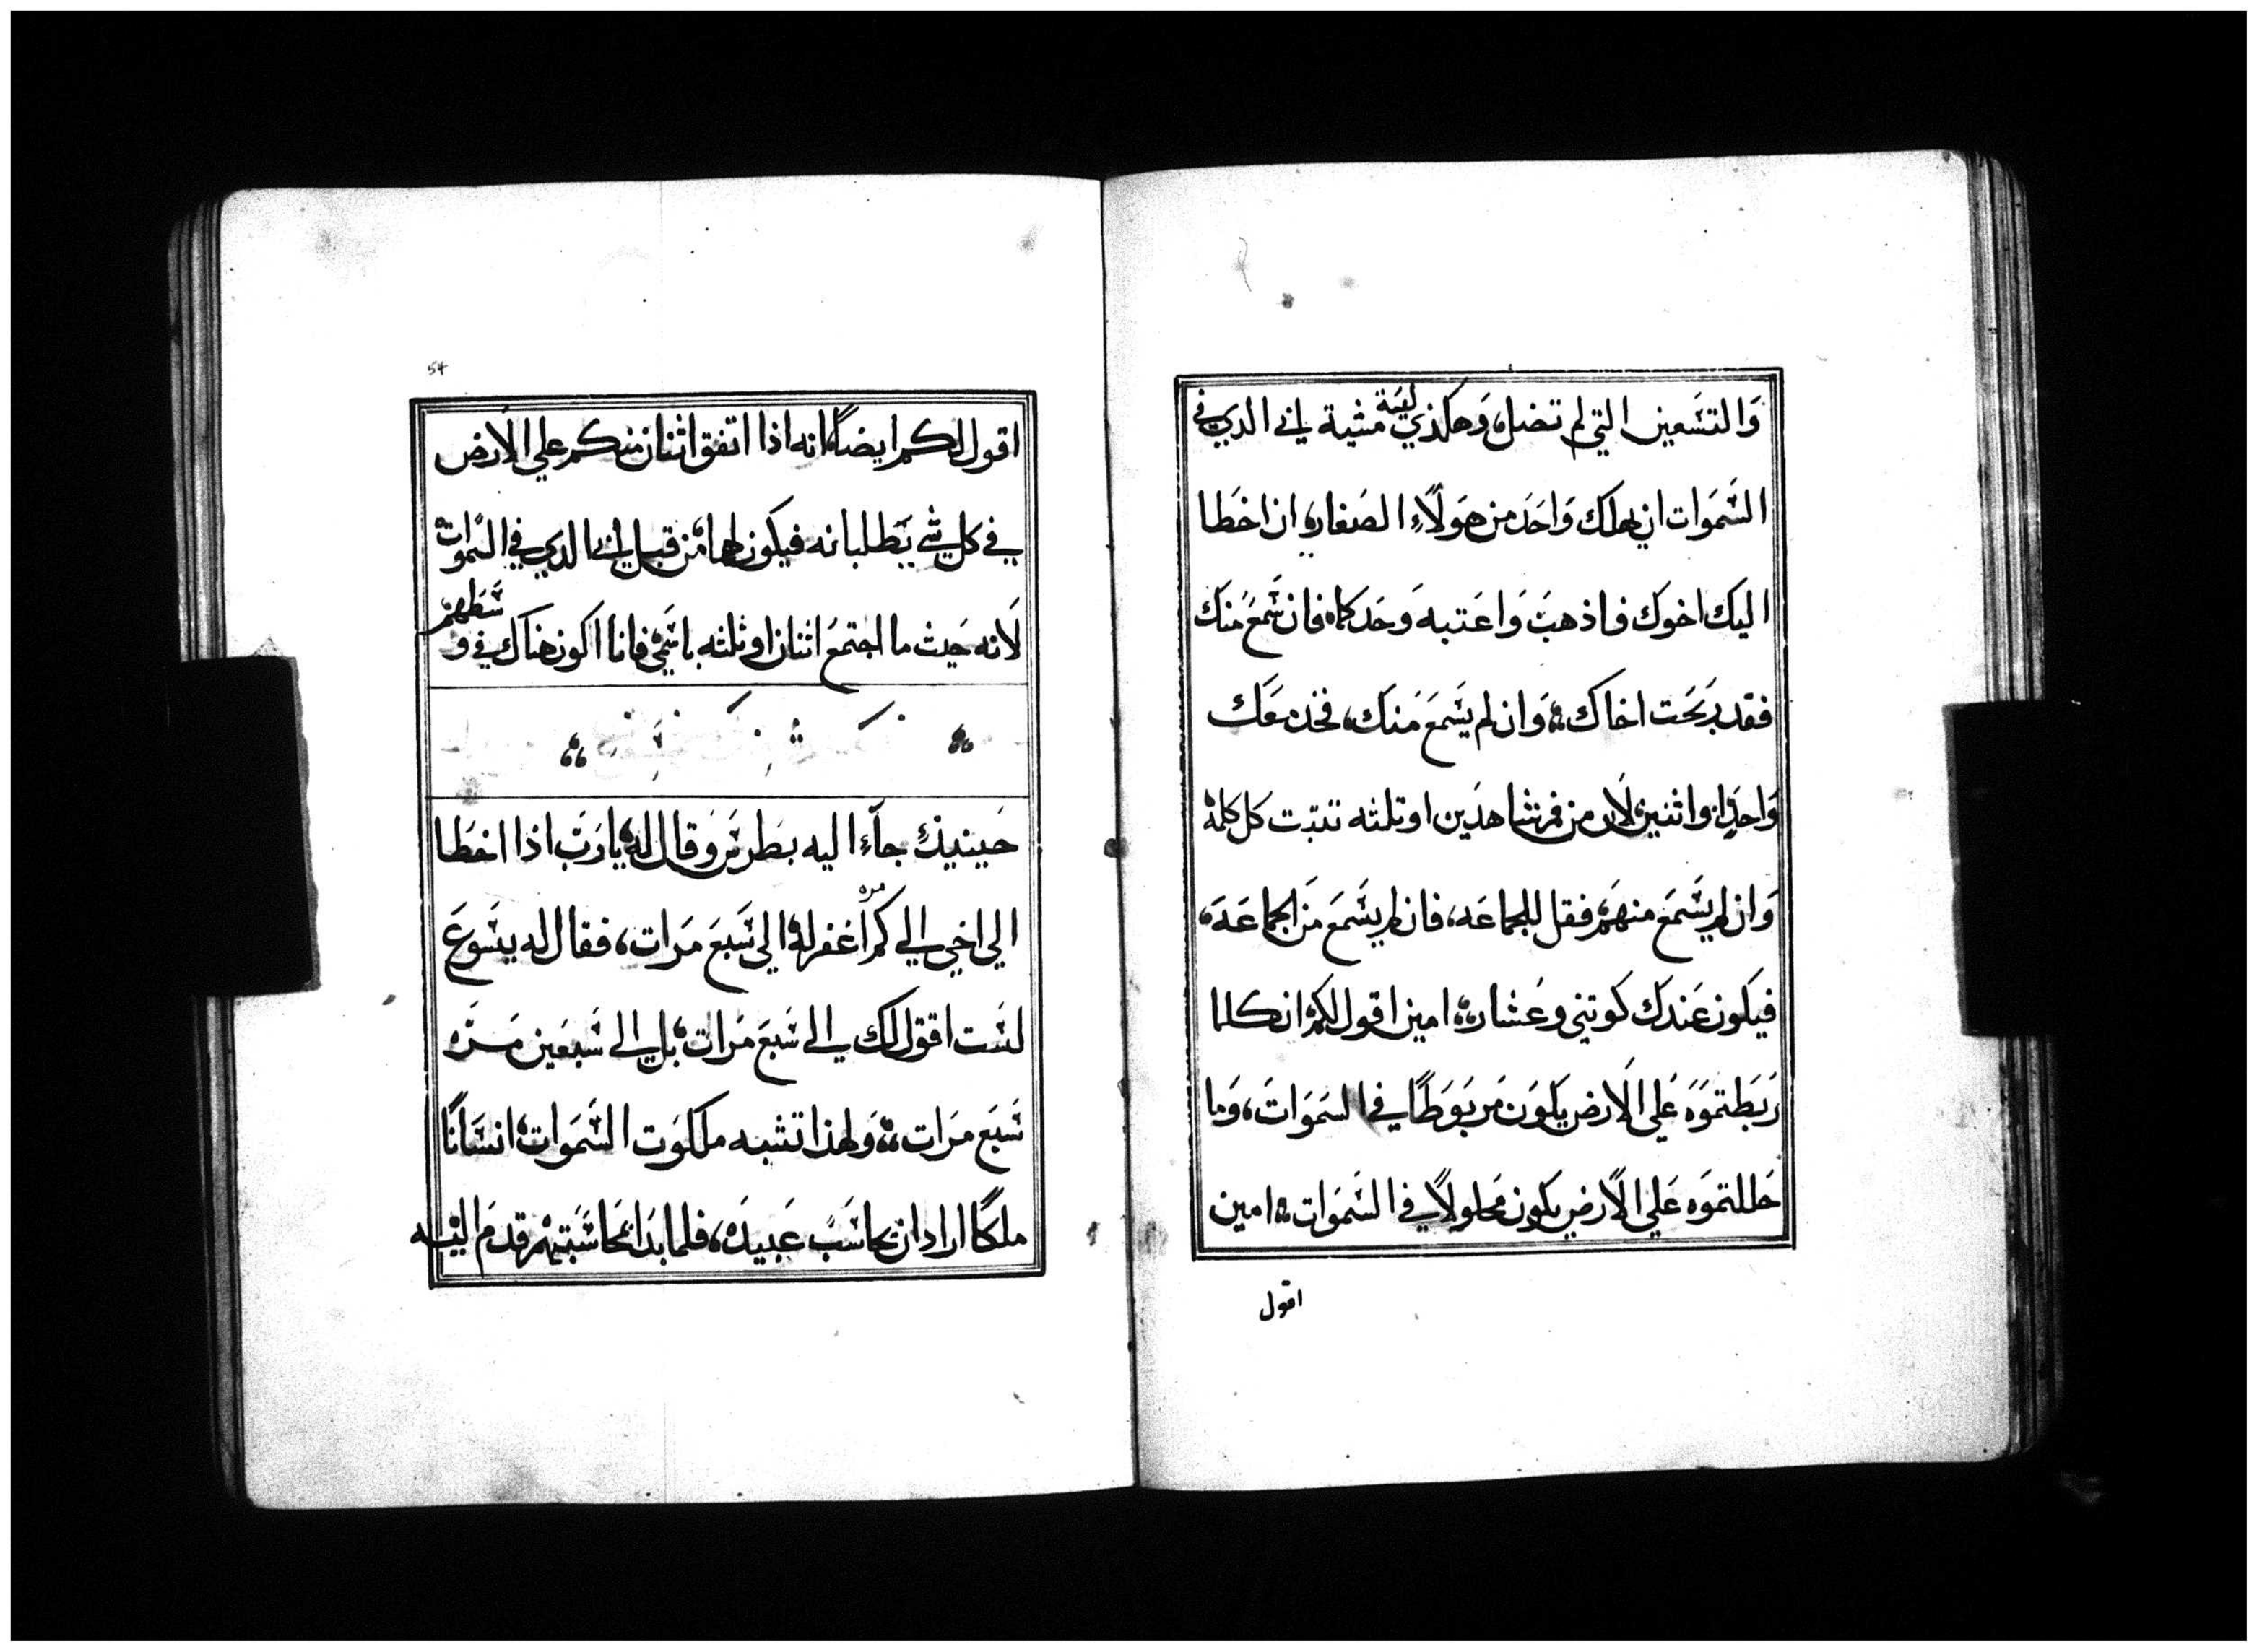 وَالتسَعين التي لم تضل، وَهكذي ليسَة مشية ابي الدي في
السَموَات ان يهلك وَاحَد من هَولَاء الصغار، ان اخطا
اليك اخوك فاذهبَ وَاعَتبه وَحَدكما، فان سَمعَ منَك
فقد رَبَحَت اخاك، وَان لم يسَمعَ منَك، فخد مَعَك
وَاحدًا، وَاثنين، لَان من فم شاهدَين او ثلثه تتبت كل كلمة
وَان لم يسَمَع منهمَ، فقل للجماعَه، فان لم يسَمعَ منَ الجماعَة،
فيكون عَندك كوتني وعشار، امين اقول لكم، ان كلما
رَبَطتموَه عَلي الَارض يكوَن مَربوَطًا في السَموَات، وَما
حَللتموَه عَلي الَارض يكون مَحلولًا في السَموَات، امين
اقول
54
اقول لكم ايضًا، انه اذا اتفق اثنان منكم علي الَارض
في كل شي يَطلبانه فيكون لهما، من قبل ابي الدي في السَموات
لَانه حَيث ما اجتمعَ اثنان او ثلثه باسَمي، فانا اكون هناك في و
سَطهم
حَينيذٍ جآء اليه بَطرسَ وَقال له، يا رَبَ اذا اخطَا
الي اخي الي كم مره اغفر له، الي سَبعَ مَرات، فقال له يسَوعَ
لسَت اقول لك الي سَبعَ مَرات، بل الي سَبعَين مَرَه
سَبعَ مَرات، وَلهذا تشبه ملكوَت السَموَات، انسَانًا
ملكًا اراد ان يحاسَبَ عَبيدَه، فلما بدَا بمحاسَبتهم قدمَ اليه